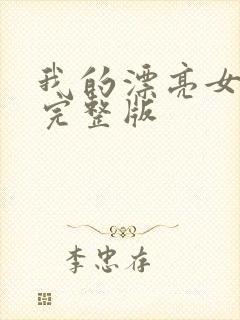 我的漂亮女
完整版
李忠存